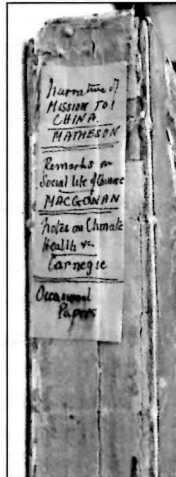 Narrative of
MISSION TO
CHINA
MATHESON
Remarks on
Social life of Chinese
MACGOWAN
Notes on Climate
Health &c
Carnegie
Occasional
Papers